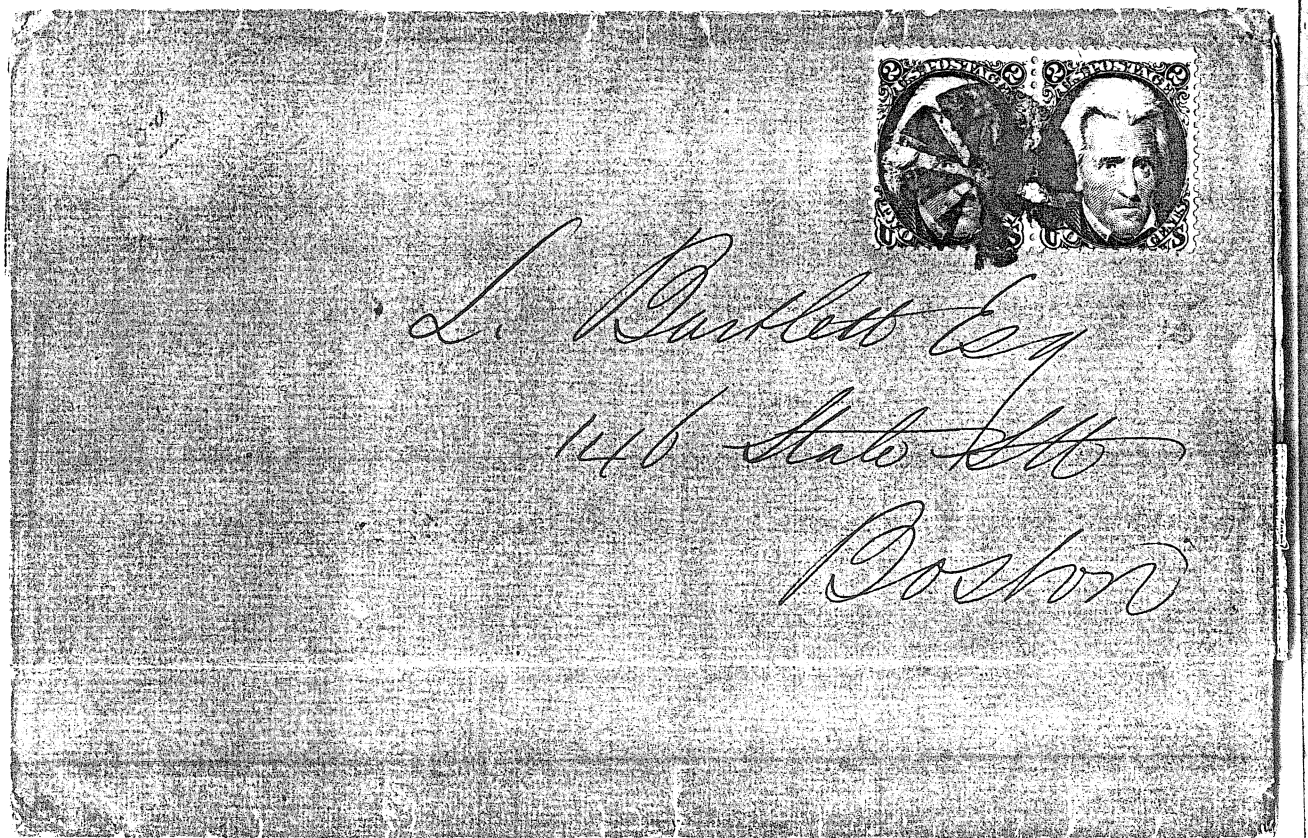 2 U.S. POSTAGE 2 2 U.S. POSTAGE 2
CENTS
L. Bartlett Esq
146 State Stt
Boston